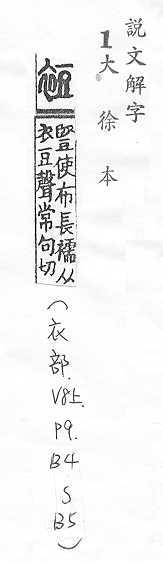 說文解字
1大徐本
豎使布長襦从
衣豆聲常句切
(衣部.V8上.P9.B4 S B5)